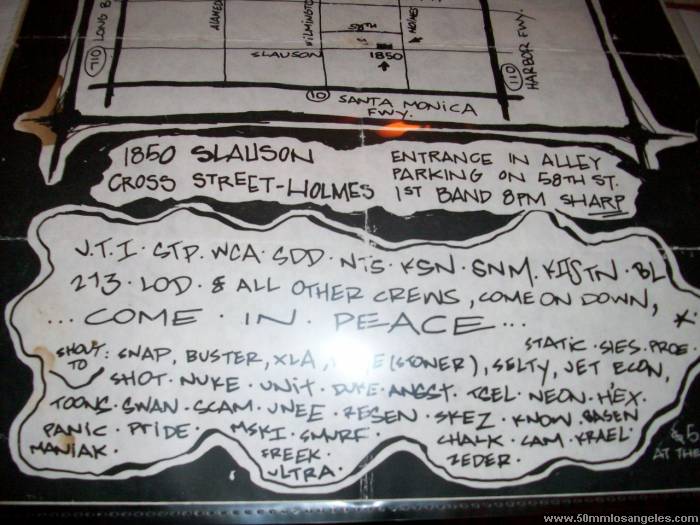 710 LONG B
ALAMEDA
WILMINGTON
58TH
HOLMES
HARBOR FWY.
110
SLAUSON
1850
10 SANTA MONICA
FWY.
1850 SLAUSON
CROSS STREET-HOLMES
ENTRANCE IN ALLEY
PARKING ON 58TH ST.
1ST BAND 8PM SHARP
J.T.I · STP. WCA · SDD · NTS · KSN · SNM. · BL
213 · LOD · & ALL OTHER CREWS, COME ON DOWN,
... COME · IN · PEACE ...
STATIC · SIES. PROE
SHOUT: SNAP, BUSTER, XLA, (STONER), SELTY, JET ECON,
TO
SHOT · NUKE · UNIT · DUKE · ANGST · TGEL · NEON · HEX.
TOONS · SWAN · SCAM · UNEE · RESEN · SKEZ · KNOW. BASEN
PANIC · PRIDE · MSKI · SMURF · CHALK · CAM · KRAEL ·
MANIAK · FREEK · ZEDER ·
ULTRA ·
$5
AT THE
www.50mmlosangeles.com